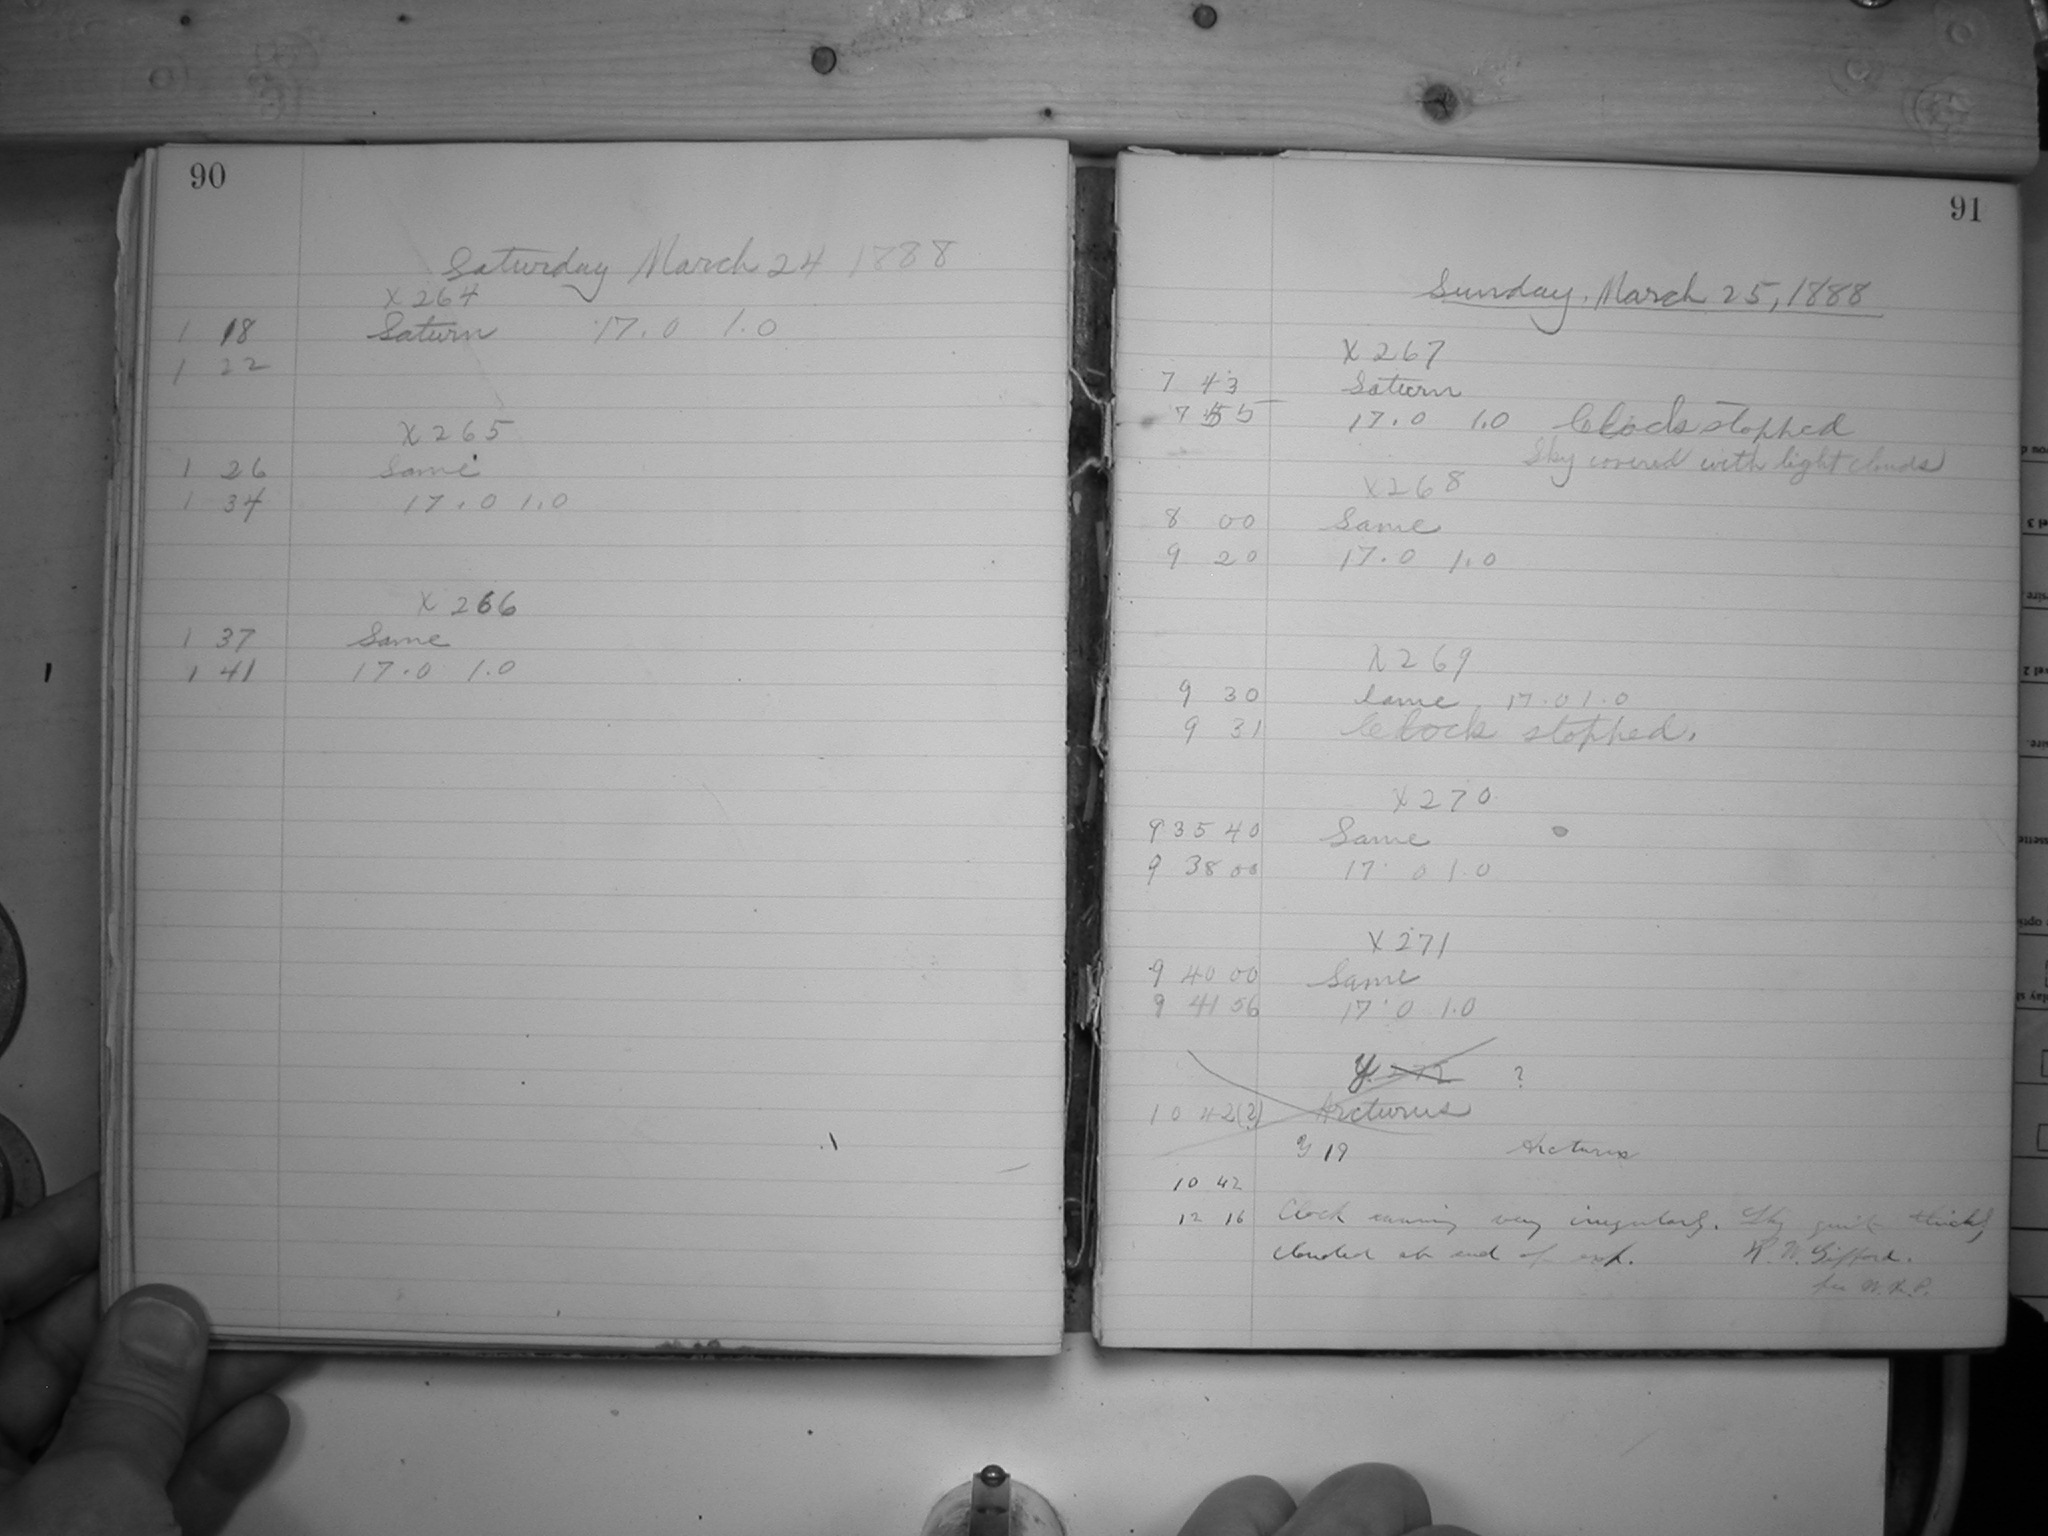 90
Saturday March 24 1888
X 264
1 18 Saturn 17.0 1.0
1 22
X 265
1 26 Same
1 34 17.0 1.0
X 266
1 37 Same
1 41 17.0 1.0
91
Sunday. March 25, 1888
X 267
7 43 Saturn
7 55 17.0 1.0 Clock stopped
Sky covered with light clouds
X 268
8 00 Same
9 20 17.0 1.0
X 269
9 30 Same 17.0 1.0
9 31 Clock stopped.
X 270
9 35 40 Same
9 38 00 17.0 1.0
X 271
9 40 00 Same
9 41 56 17.0 1.0
Y. 272 ?
10 42(?) Arcturus
Y 19 Arcturus
10 42
12 16 Clock running very irregularly. Sky quite thickly
clouded at end of exp. R. W. Gifford.
per